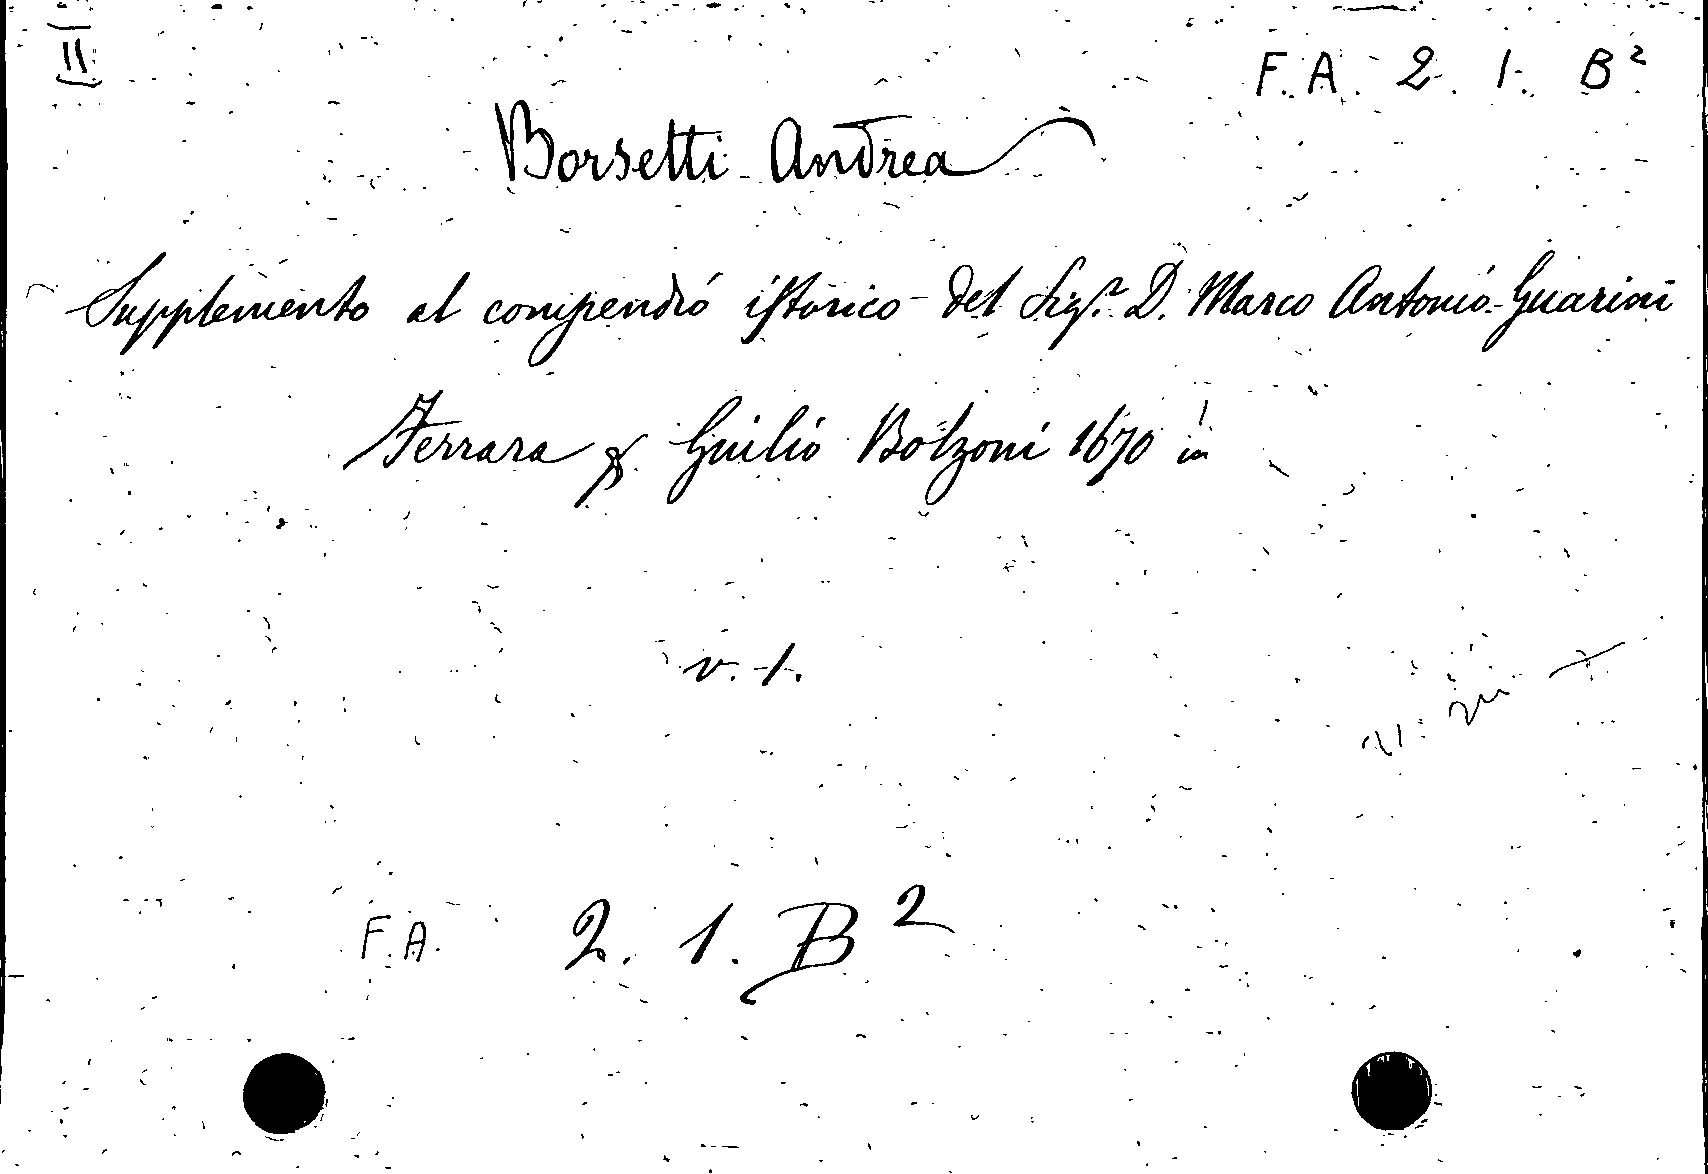 II
F. A. 2. 1. B²
Borsetti Andrea
Supplemento al compendio istorico del Sigr. D. Marco Antonio Guarini
Ferrara p Giulio Bolzoni 1670 in
v. 1.
F.A. 2. 1. B²